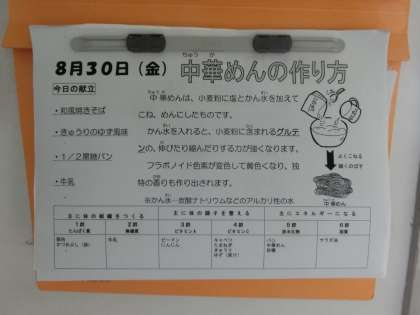 8月30日（金） 中華めんの作り方
ちゅう か
今日の献立
・和風焼きそば
・きゅうりのゆず風味
・1／2黒糖パン
・牛乳
中華めんは、小麦粉に塩とかん水を加えて
こね、めんにしたものです。
かん水を入れると、小麦粉に含まれるグルテ
ンの、伸びたり縮んだりする力が強くなります。
フラボノイド色素が変色して黄色くなり、独
特の香りも作り出されます。
※かん水…炭酸ナトリウムなどのアルカリ性の水
よくこねる
強くのばす
中華めん
主に体の組織をつくる 主に体の調子を整える 主にエネルギーになる
1群 2群 3群 4群 5群 6群
たんぱく質 無機質 ビタミンA ビタミンC 炭水化物 脂質
豚肉 牛乳 ピーマン キャベツ パン サラダ油
かつおぶし にんじん たまねぎ 中華めん
きゅうり 砂糖
ゆず